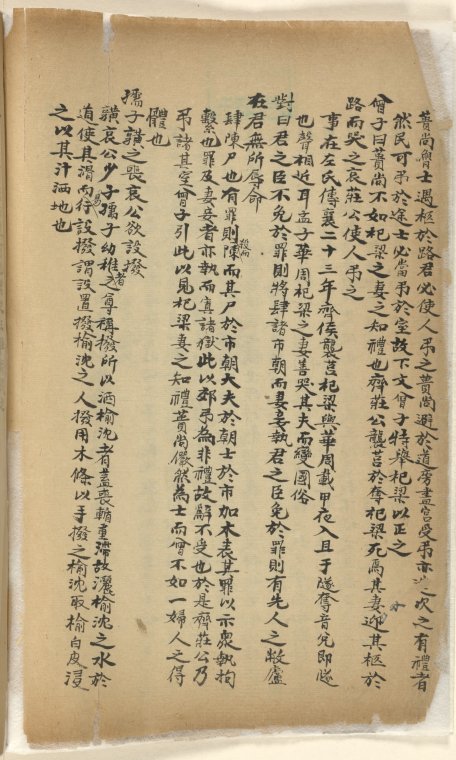 蕢尚魯士遇柩於路君必使人弔之蕢尚避於道旁畫宮受弔亦次之有禮者
然民可弔於途士必當弔於室故下文曾子特舉杞梁以正之
曾子曰蕢尚不如杞梁之妻之知禮也齊莊公襲莒於奪杞梁死焉其妻迎其柩於
路而哭之哀莊公使人弔之
事在左氏傳襄二十三年齊侯襲莒杞梁與華周載甲夜入且于隧奪音兌即隧
也聲相近耳孟子華周杞梁之妻善哭其夫而變國俗
對曰君之臣不免於罪則將肆諸市朝而妻妾執君之臣免於罪則有先人之敝廬
在君無所辱命
肆陳尸也有罪則殺而陳其尸於市朝大夫於朝士於市加木表其罪以示衆執拘
繫也罪及妻妾者亦執而寘諸獄此以郊弔為非禮故辭不受也於是齊莊公乃
弔諸其室曾子引此以見杞梁妻之知禮蕢尚儼然為士而曾不如一婦人之得
體也
孺子䵍之喪哀公欲設撥
䵍哀公少子孺子幼稚之尊稱撥所以洒榆沈者蓋喪輴重滯故灑榆沈之水於
道使其滑而易行設撥者謂設置撥榆沈之人撥用木條以手撥之榆沈取榆白皮浸
之以其汁洒地也